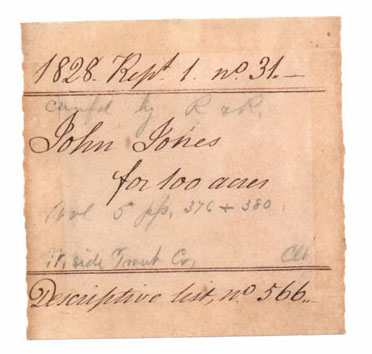 1828. Rept. 1. no. 31.
conf'd by R & R.
John Jones
for 100 acres
Vol 5 pp. 376 + 380.
side Trout Cr.
Descriptive list, no. 566.